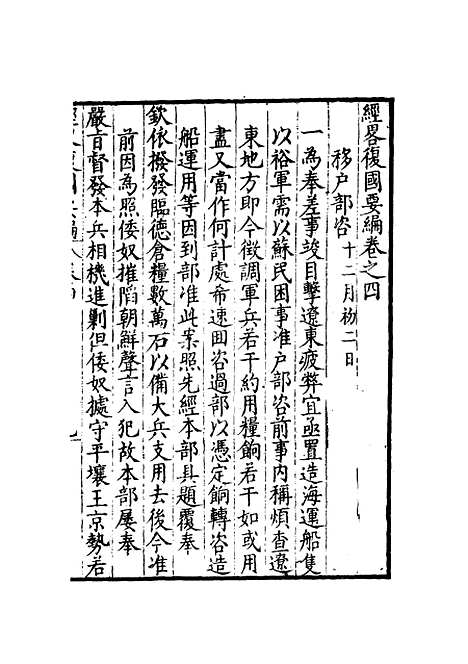 經畧復國要編卷之四
移户部咨十二月初二日
一為奉差事竣目擊遼東疲弊宜亟置造海運船隻
以裕軍需以蘇民困事准户部咨前事内稱煩查遼
東地方即今徵調軍兵若干約用糧餉若干如或用
盡又當作何計處希速回咨過部以憑定餉轉咨造
船運用等因到部准此案照先經本部具題覆奉
欽依撥發臨德倉糧數萬石以備大兵支用去後今准
前因為照倭奴摧陷朝鮮聲言入犯故本部屡奉
嚴旨督發本兵相機進剿但倭奴據守平壤王京勢若